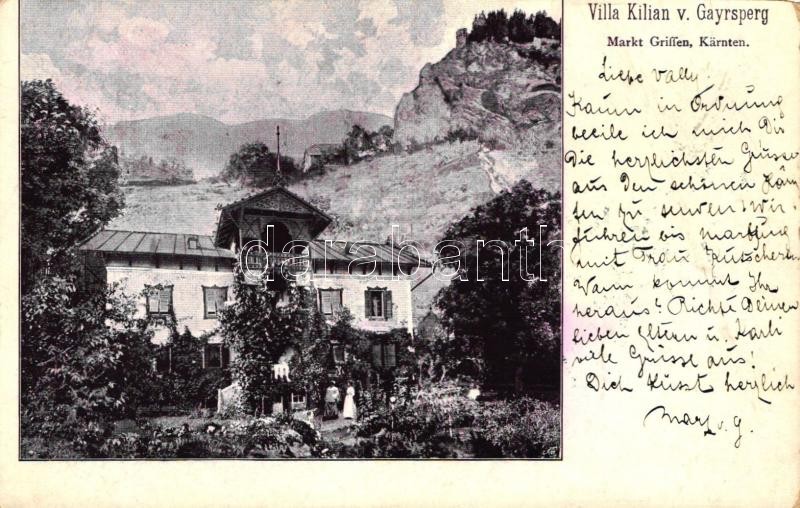 Villa Kilian v. Gayrsperg
Markt Griffen, Kärnten.
Liebe Vally!
Kaum in Ordnung
beeile ich mich Dir
Die herzlichsten Grüsse
aus Den schönen Kärn
ten zu senden. Wir
fuhren bis Marburg
mit Frau
Wann kommt Ihr
heraus? Richte Deinen
lieben Eltern u. Karli
viele Grüsse aus!
Dich küsst herzlich
v. G.
darabanth